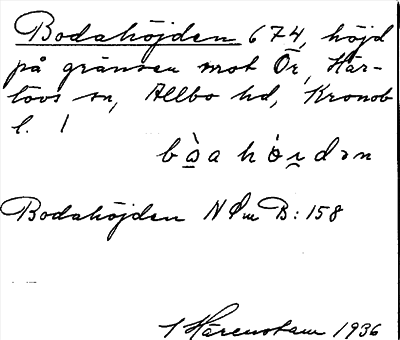 Bodahöjden 674, höjd
på gränsen mot Ör, Här-
lövs sn, Allbo hd, Kronob
l. 1
bòa hö́ɪdən
Bodahöjden N Sm B: 158
Härenstam 1936